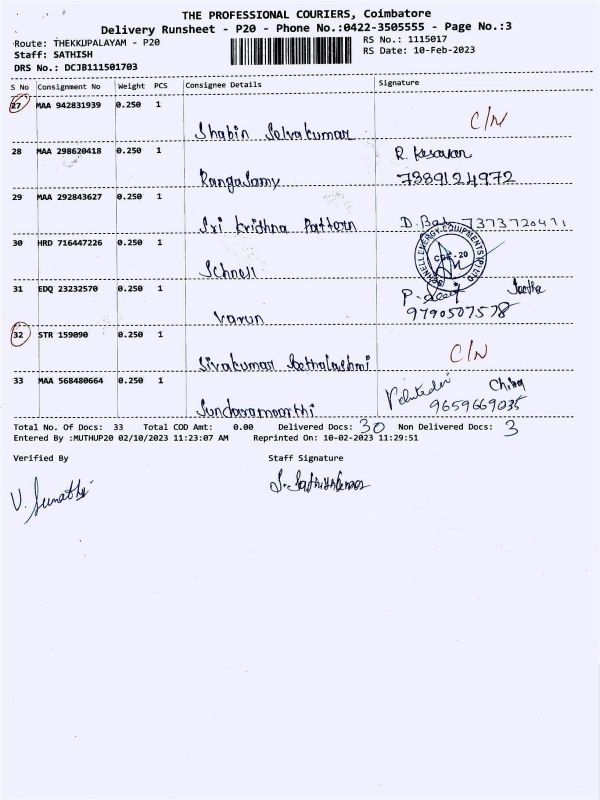 THE PROFESSIONAL COURIERS, Coimbatore
Delivery Runsheet - P20 - Phone No.:0422-3505555 - Page No.:3
Route: THEKKUPALAYAM - P20 RS No.: 1115017
Staff: SATHISH RS Date: 10-Feb-2023
DRS No.: DCJB111501703
S No Consignment No Weight PCS Consignee Details Signature
27 MAA 942831939 0.250 1
Shabin Selvakumar C/N
28 MAA 298620418 0.250 1 R. Kesavan
RangaSamy 7389124972
29 MAA 292843627 0.250 1
Sri Krishna Pattern D. 7373720471
30 HRD 716447226 0.250 1
Schnell
31 EDQ 23232570 0.250 1
Varun 9790507578
32 STR 159090 0.250 1
Sivakumar C/N
33 MAA 568480664 0.250 1
Sundaramoorthi 9659669035
Total No. Of Docs: 33 Total COD Amt: 0.00 Delivered Docs: 30 Non Delivered Docs: 3
Entered By :MUTHUP20 02/10/2023 11:23:07 AM Reprinted On: 10-02-2023 11:29:51
Verified By Staff Signature